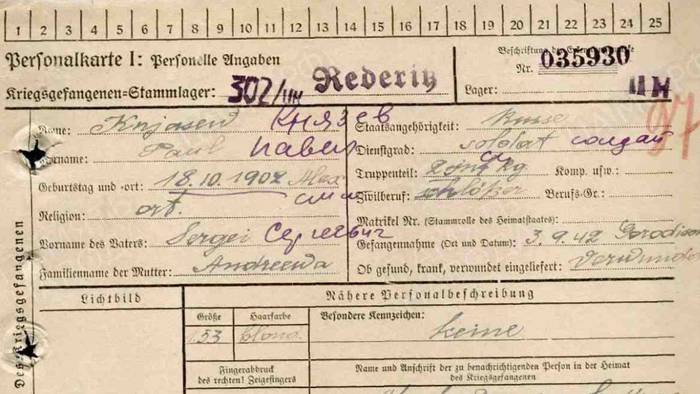 1 2 3 4 5 6 7 8 9 10 11 12 13 14 15 16 17 18 19 20 21 22 23 24 25
Personalkarte I: Personelle Angaben
Kriegsgefangenen=Stammlager: 302/IIH Rederitz
Beschriftung der Erkennungsmarke
Nr. 035930
Lager: II H
Des Kriegsgefangenen
Name: Knjasew Князев
Vorname: Paul Павел
Geburtstag und -ort: 18.10.1902
Religion: ort.
Vorname des Vaters: Sergei Сергеевич
Familienname der Mutter: Andreewa
Staatsangehörigkeit: Russe
Dienstgrad: Soldat солдат
Truppenteil: Komp. usw.:
Zivilberuf: Schlosser Berufs-Gr.:
Matrikel Nr. (Stammrolle des Heimatstaates):
Gefangennahme (Ort und Datum): 3.9.42
Ob gesund, krank, verwundet eingeliefert:
Lichtbild
Nähere Personalbeschreibung
Größe Haarfarbe Besondere Kennzeichen:
53 blond keine
Fingerabdruck
des rechten! Zeigefingers
Name und Anschrift der zu benachrichtigenden Person in der Heimat
des Kriegsgefangenen